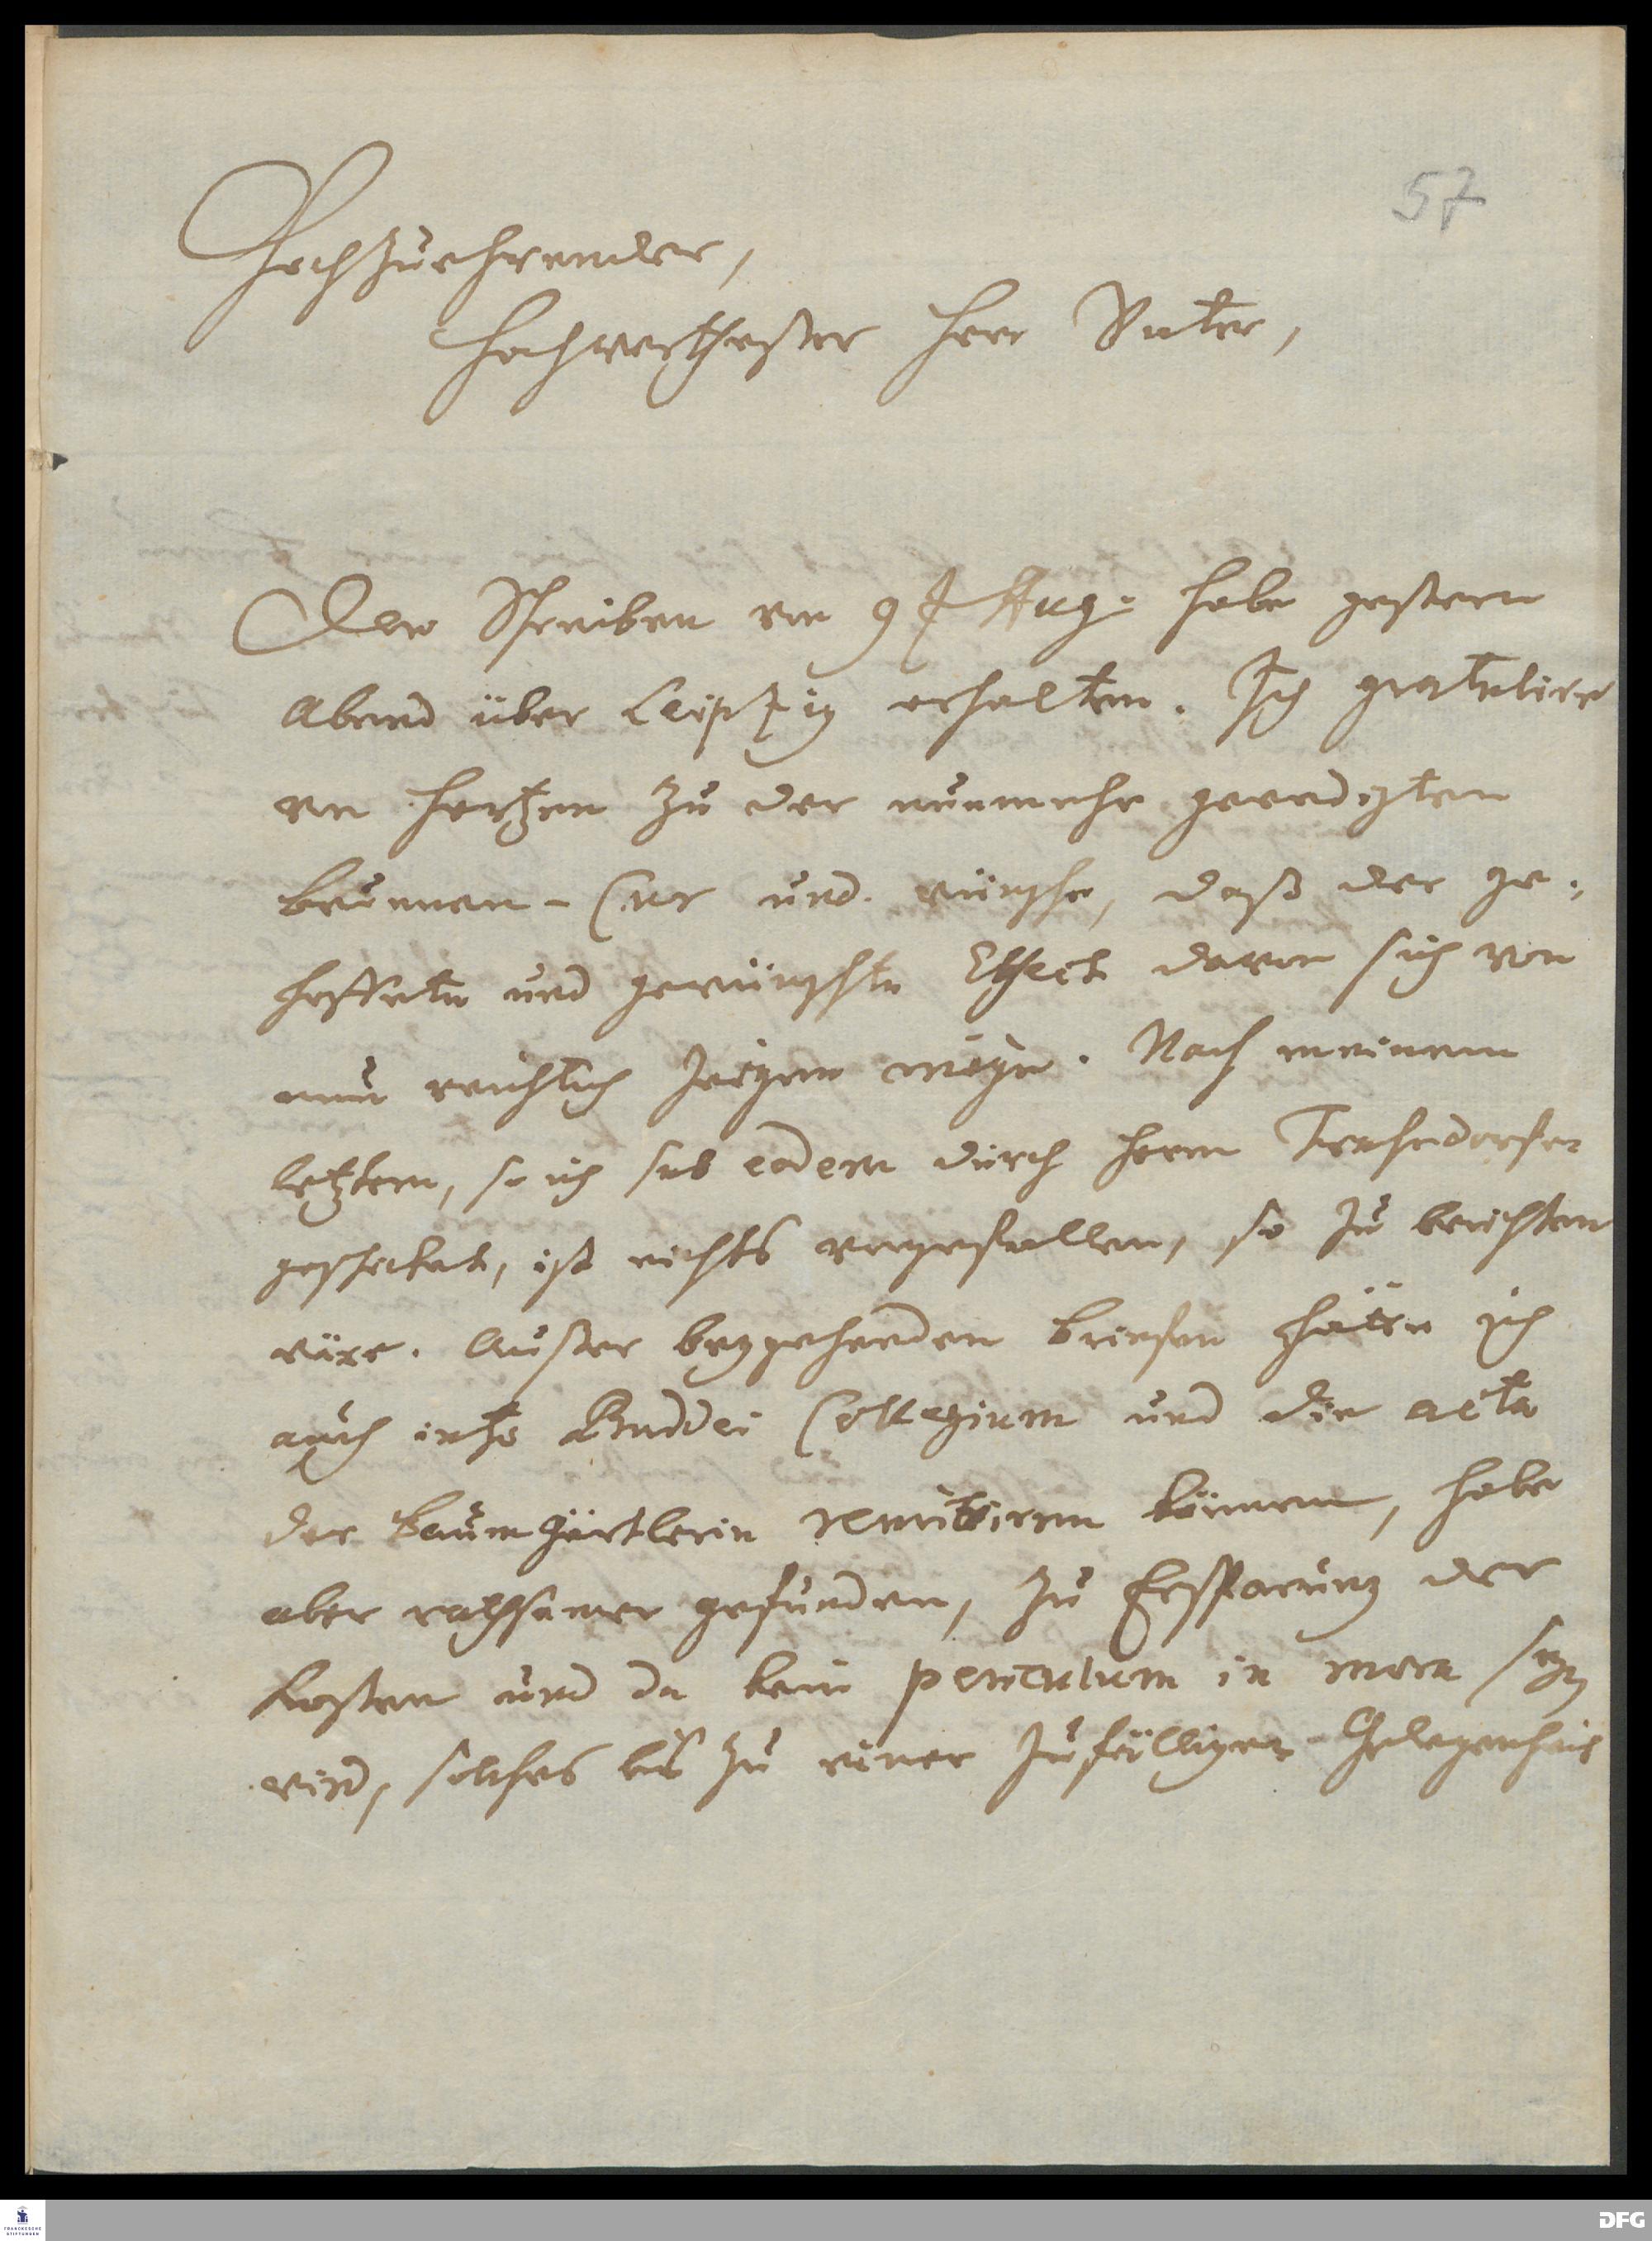 57
Hochzuehrender,
Hochwerthester Herr Vater,
Dero Schreiben vom 9t Aug: habe gestern
Abend über Leipzig erhalten. Ich gratulire
von Hertzen zu der nunmehr geendigten
Brunnen-Cur und wünsche, daß der ge-
hoffete und gewünschte Effect davon sich von
nun reichlich zeigen möge. Nach meinem
letztern, so ich sub eodem durch Herrn
geschicket, ist nichts vorgefallen, so zu berichten
wäre. Außer beygehenden Briefen hätte ich
auch Buddei Collegium und die acta
der Baumgärtlerin remittiren können, habe
aber rathsamer gefunden, zu Ersparung der
Kosten und da kein periculum in mora seyn
wird, solches bis zu einer zufälligen Gelegenheit
FRANCKESCHE
STIFTUNGEN
DFG